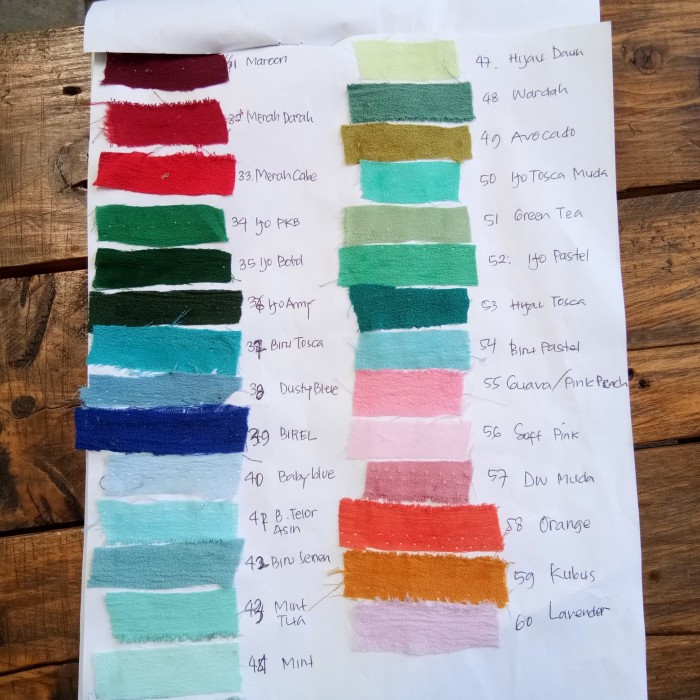 31 Maroon
32 Merah Darah
33. Merah Cabe
34 Ijo PKB
35 Ijo Botol
36 Ijo Army
37 Biru Tosca
38 Dusty Blue
39 BIREL
40 Baby blue
41 B. Telor
Asin
42 Biru Semen
43 Mint
Tua
44 Mint
47. Hijau Daun
48 Wardah
49 Avocado
50 Ijo Tosca Muda
51 Green Tea
52. Ijo Pastel
53 Hijau Tosca
54 Biru Pastel
55 Guava/Pink Peach
56 Soft Pink
57 Muda
58 Orange
59 Kubus
60 Lavender